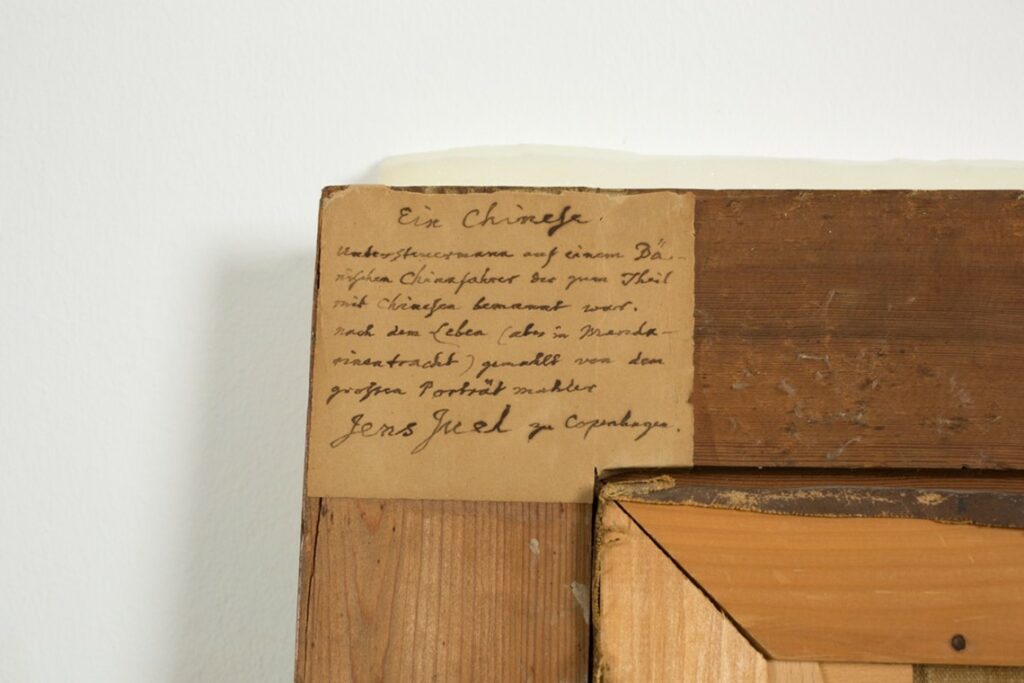 Ein Chinese.
Untersteuermann auf einem Dä-
nischen Chinafahrer der zum Theil
mit Chinesen bemannt war.
nach dem Leben (aber in Manda-
rinentracht) gemahlt von dem
großen Porträt mahler
Jens Juel zu Copenhagen.